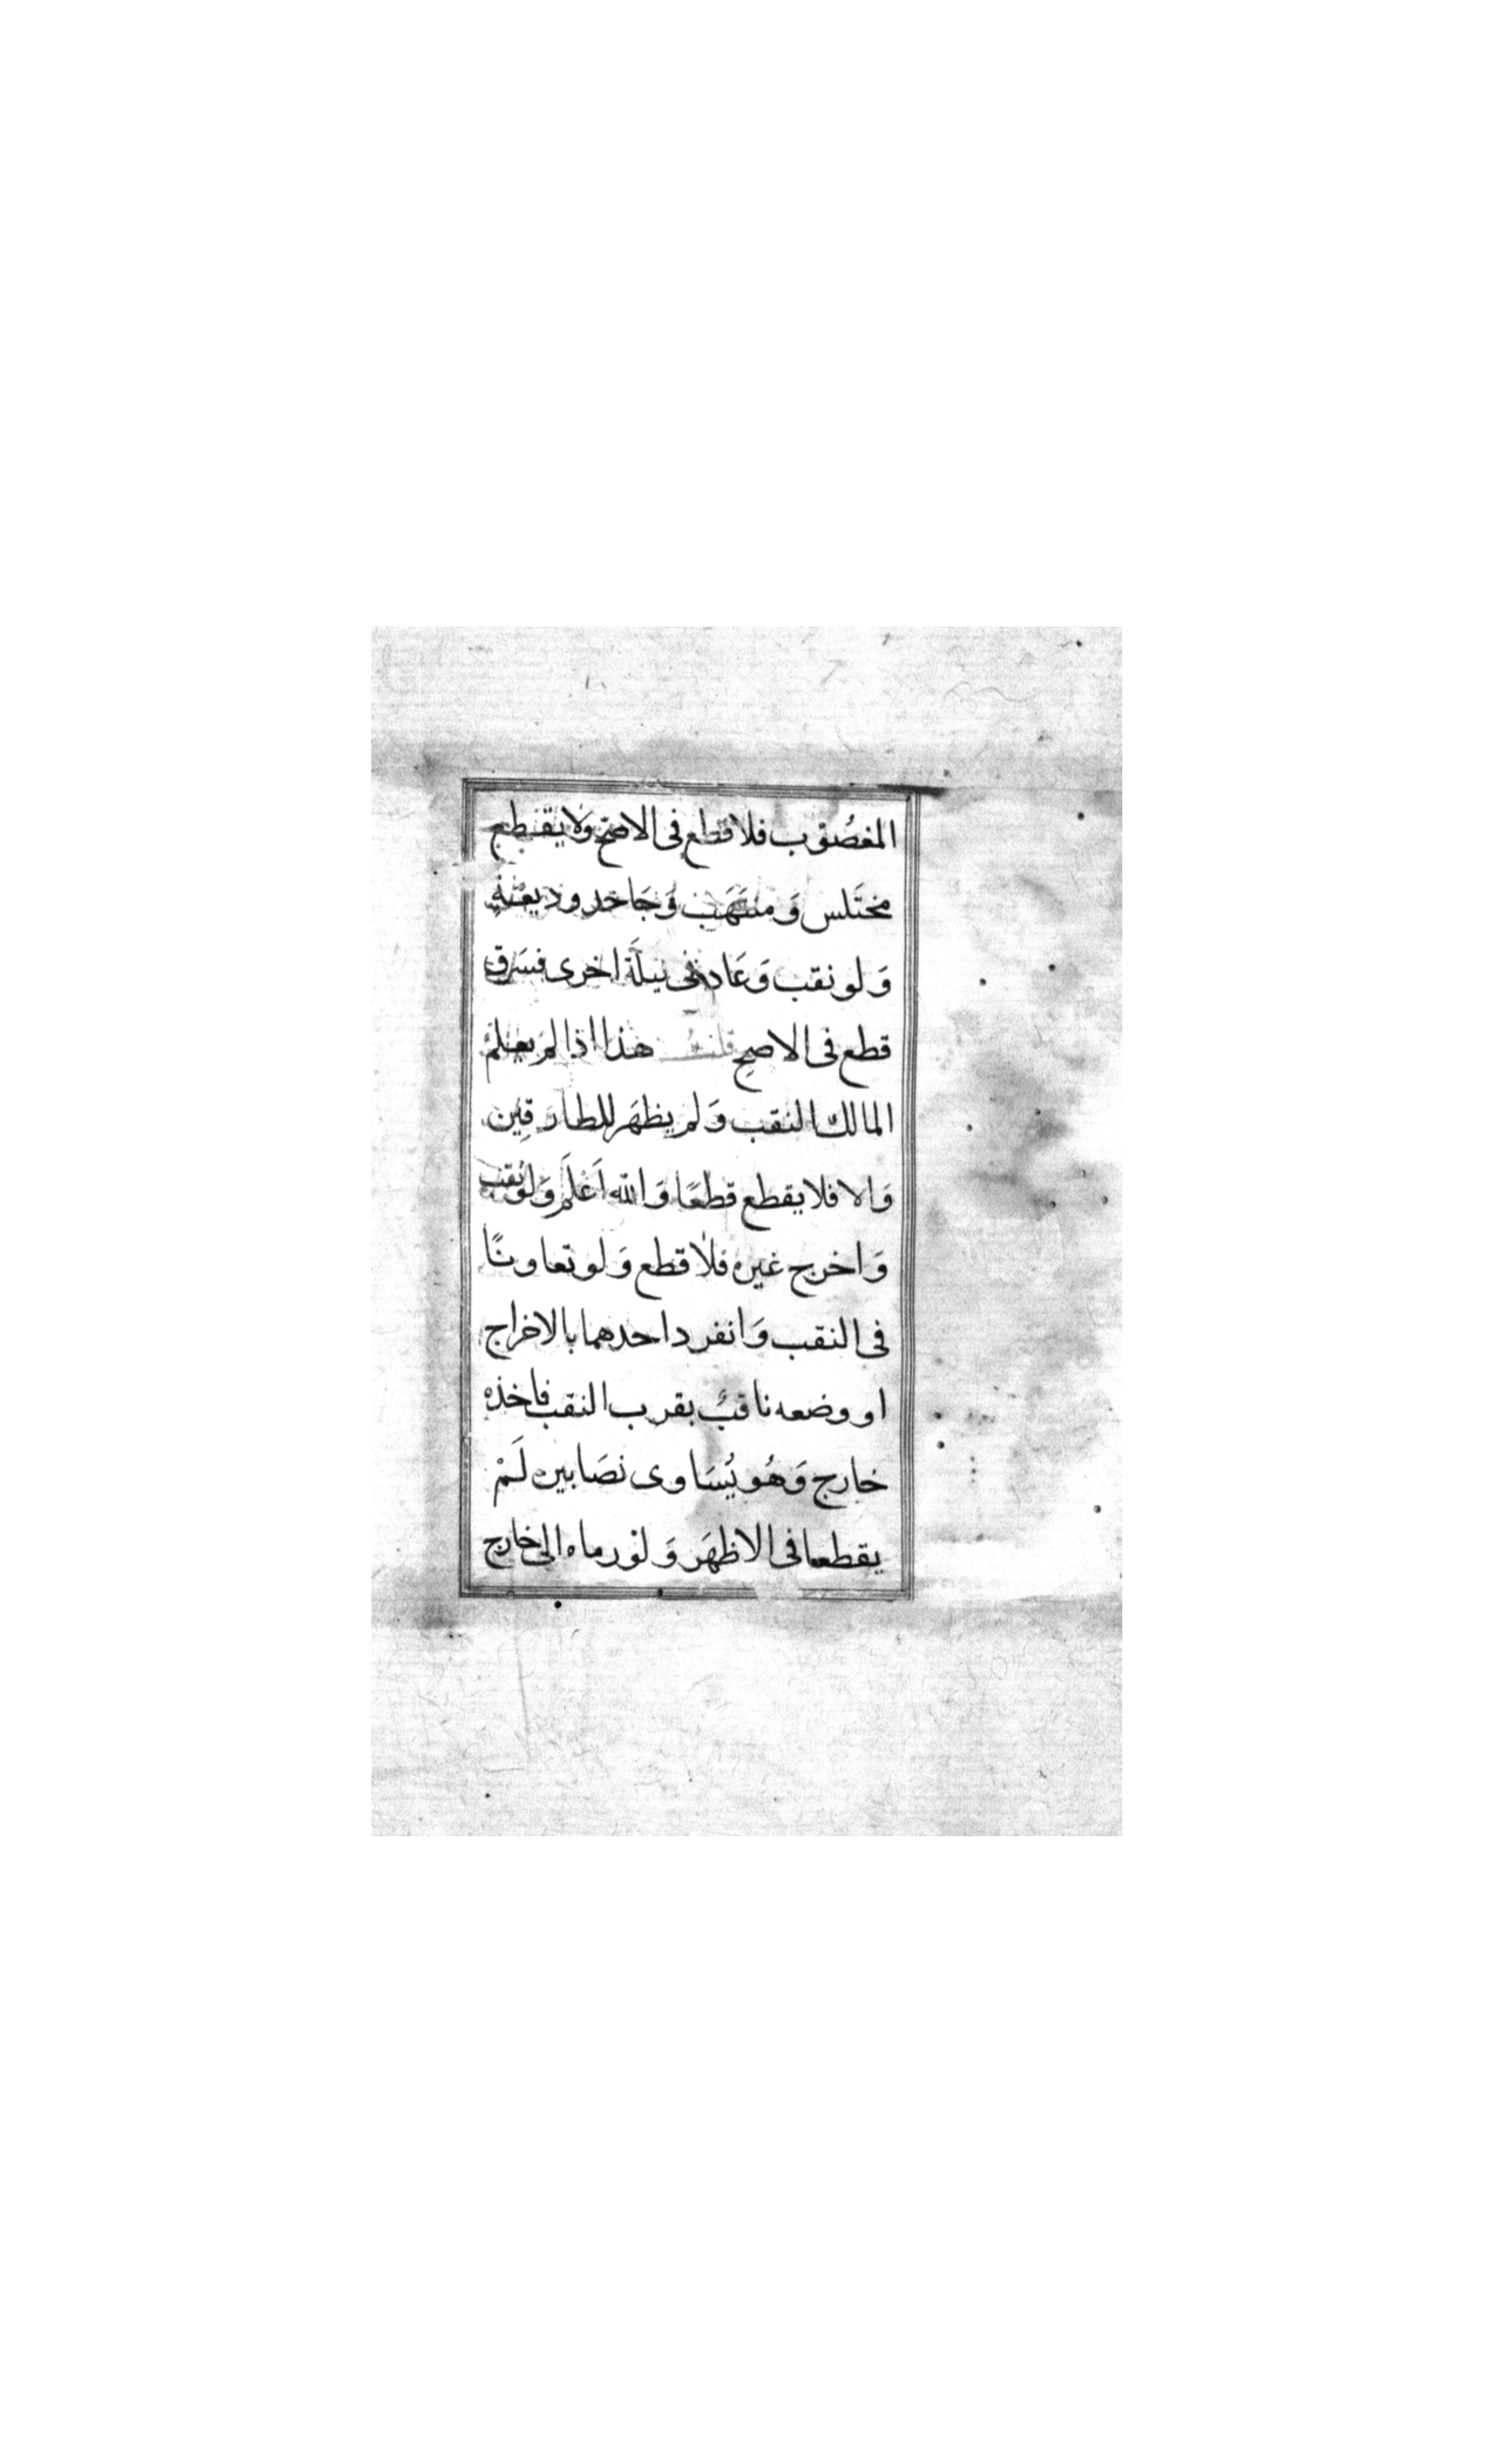 المغصُوْب فلا قطع فى الاصحّ ولا يقطع
مختَلس وَمنتَهَب وَجَاحد وديعَةٍ
وَلو نقب وَعَاد فى ليلَة اخرى فسَرق
قطع فى الاصحِ قلت هذا اذا لم يعلم
المالك النقب وَلم يظهَر للطارقِين
وَالا فلا يقطع قطعًا وَالله اَعْلَم وَلو نقب
وَاخرج غيره فلا قطع وَلو تعاونَا
فى النقب وَانفرد احدهما بالاخراج
او وضعه ناقبٌ بقرب النقب فاخذه
خارج وَهُو يُسَاوى نصَابين لَمْ
يقطعا فى الاظهَر وَلوْ رماه الى خارج